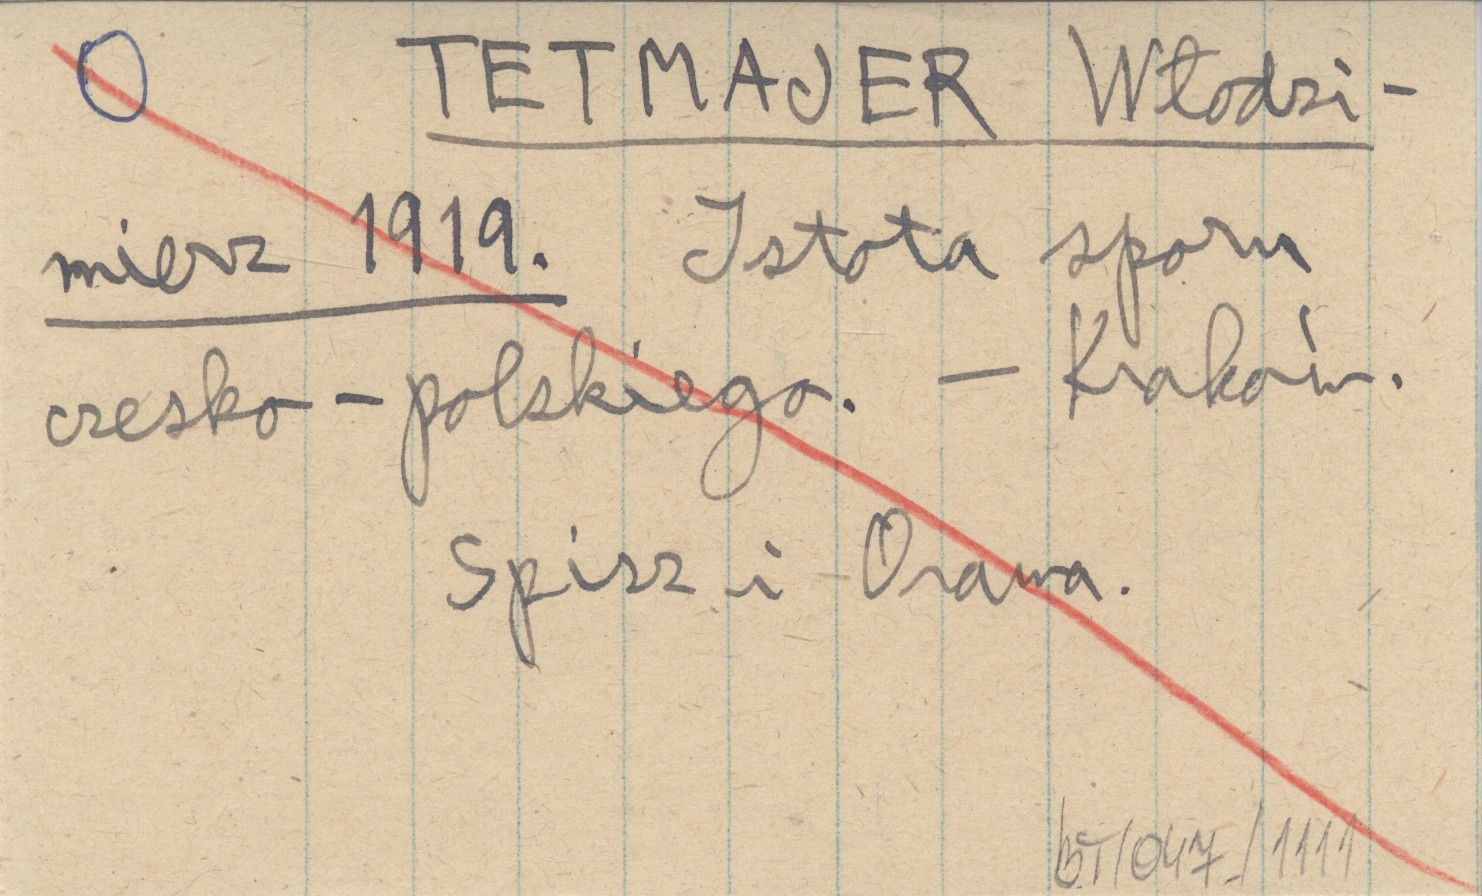 TETMAJER Włodzi-
mierz 1919. Istota sporu
czesko-polskiego. — Kraków.
Spisz i Orawa.
BT/047/1111